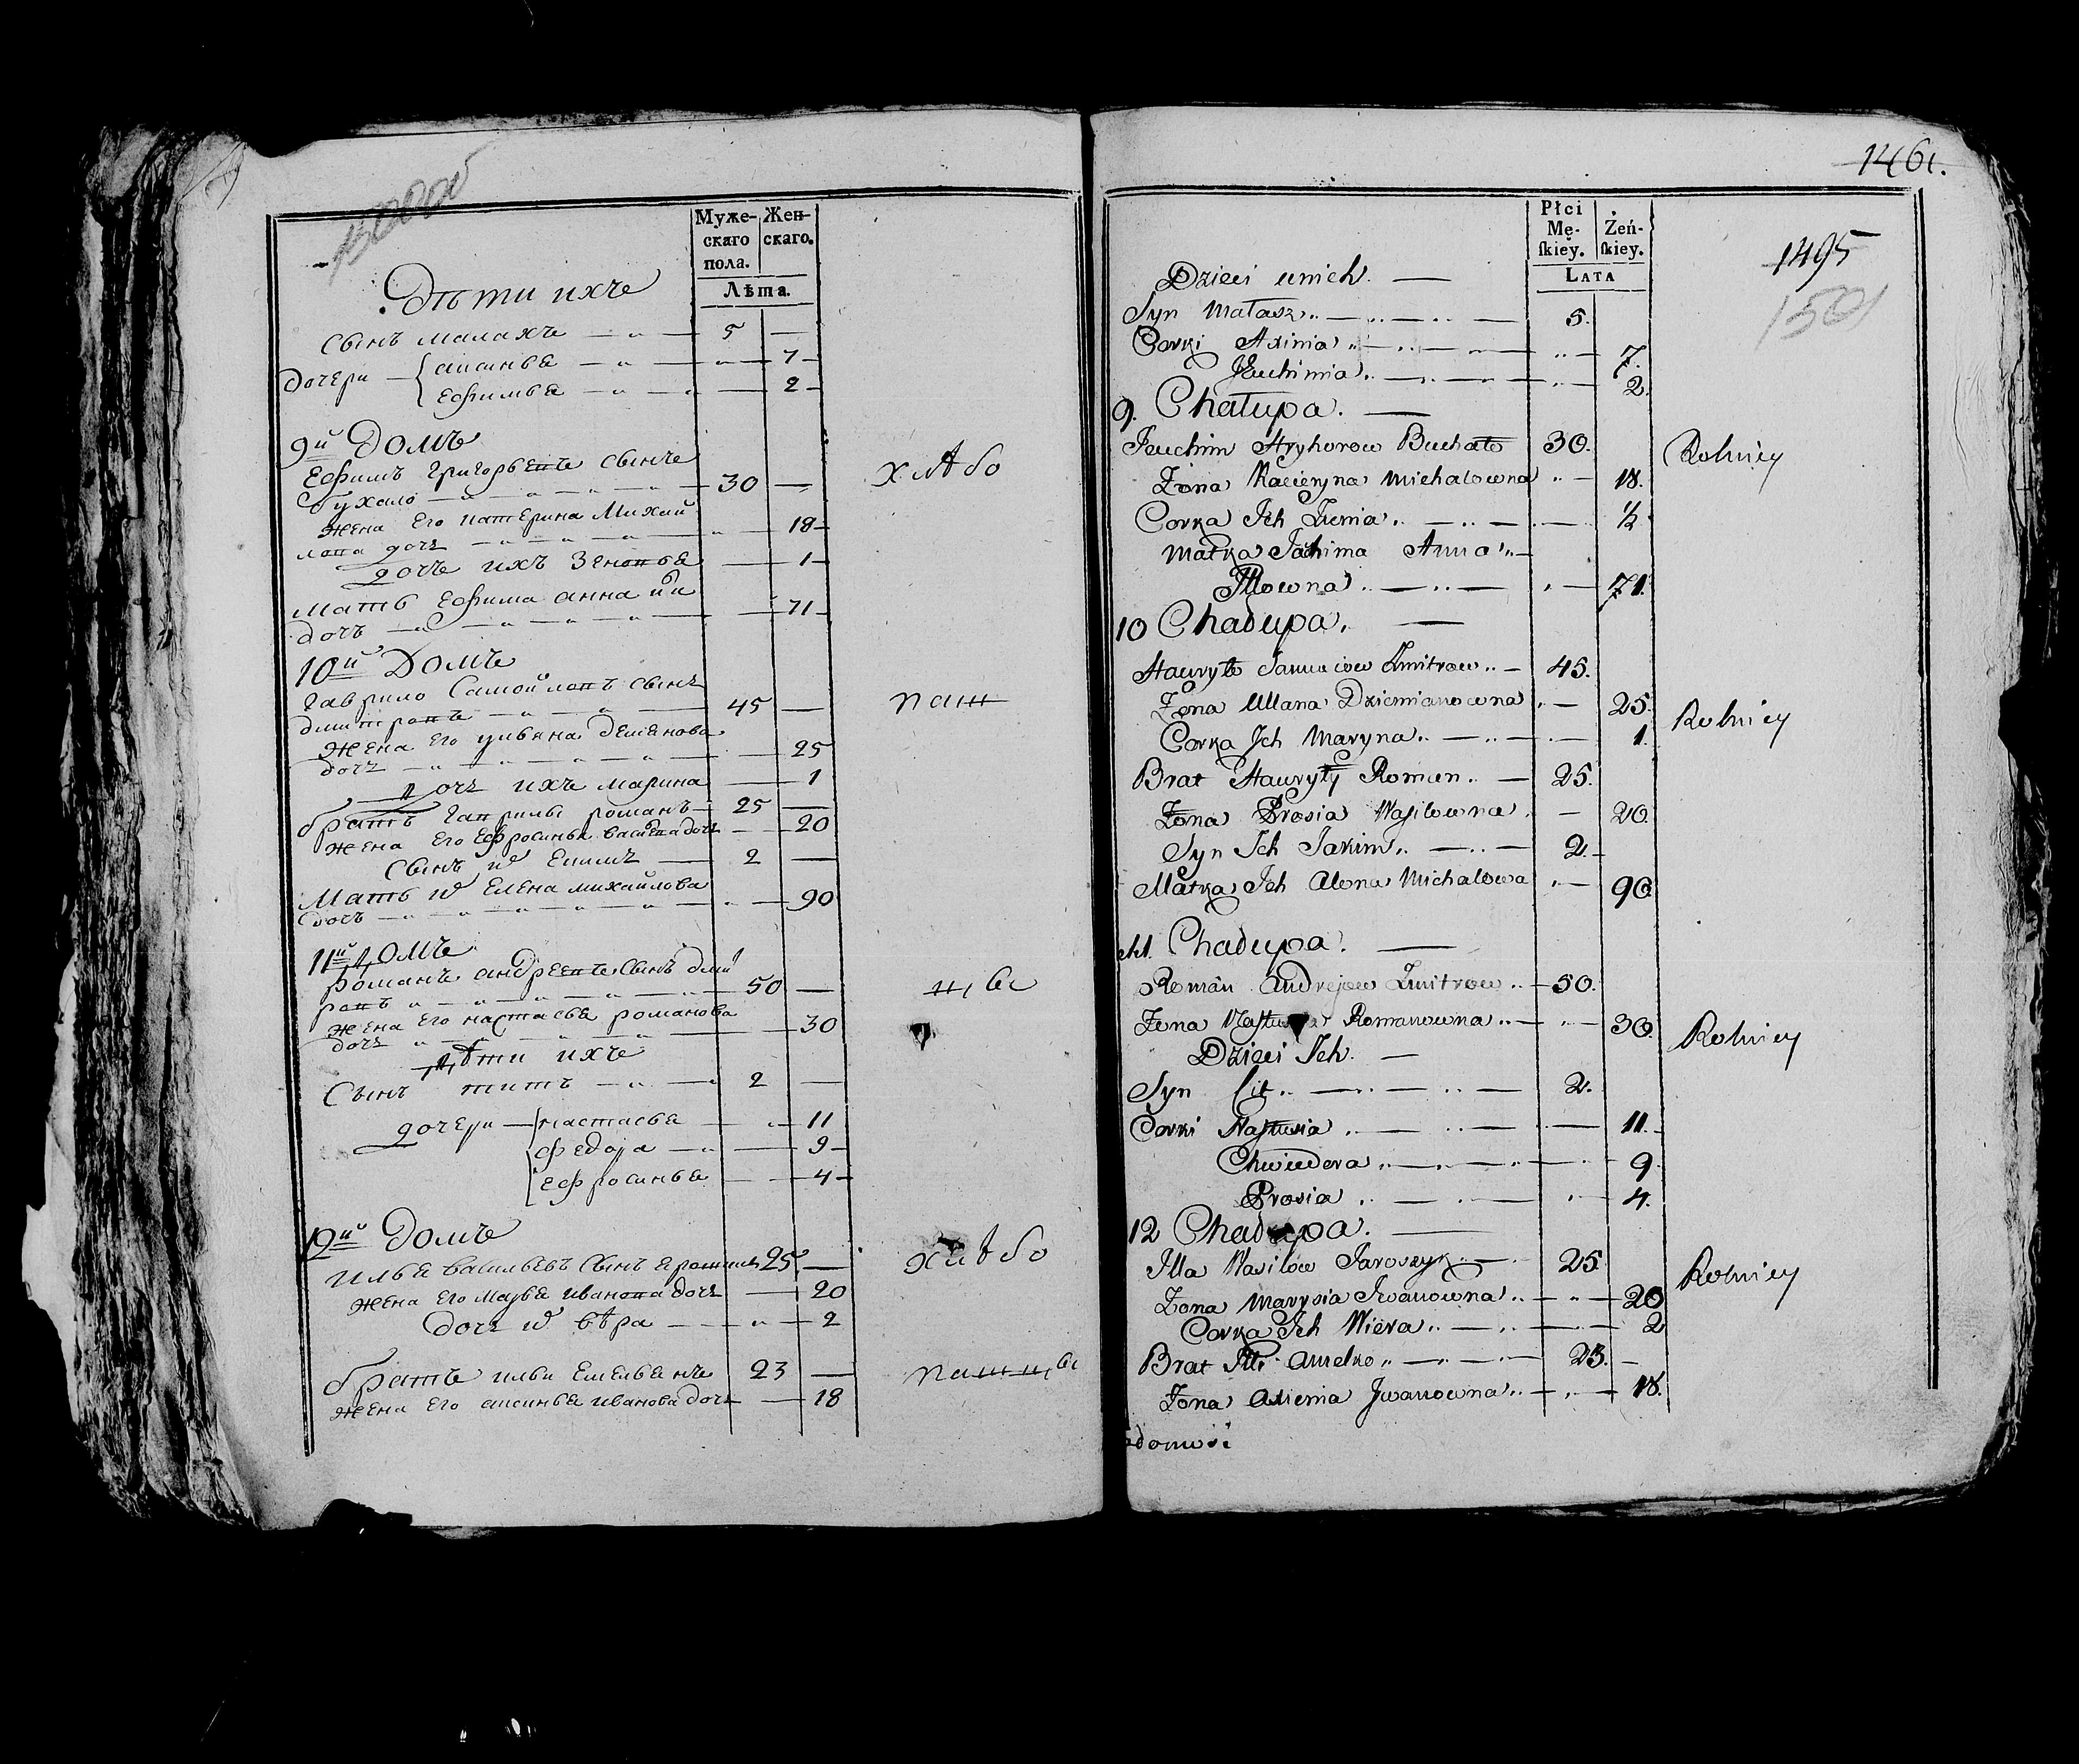 Муже- Жен-
скаго скаго.
пола.
Лѣта.
Дѣти ихъ
сынъ малахъ 5
дочери аксинья 7
ефимья 2
9й Домъ
Ефимъ Григорьевъ сынъ
бухало 30
хлѣбо
жена Его катерина Михай
лова дочь 18
дочь ихъ Зеновья 1
мать Ефима анна ил
дочь 71
10й Домъ
гаврило Самойловъ сынъ
дмитровъ 45
паш
жена Его ульяна деменова
дочь 25
дочь ихъ марина 1
братъ гаврилы романъ 25
жена Его Ефросинья василева дочь 20
сынъ их Екимъ 2
Мать их Елена михайлова
дочь 90
11й домъ
романъ андреевъ сынъ дми
ровъ 50
щы
жена Его настасья романова
дочь 30
дѣти ихъ
Сынъ титъ 2
дочери настасья 11
федора 9
ефросинья 4
12й домъ
илья васильевъ сынъ ярошик 25
хлѣбо
жена Его марья иванова дочь 20
дочь их вѣра 2
братъ ильи Емельянъ 23
пашщы
жена Его аксинья иванова дочь 18
146.
1495
1501
Płci
Mę- Żeń-
ſkiey. ſkiey.
LATA
Dzieci unich.
Syn Małasz 5.
Corki Axinia 7.
Jeuchimia 2.
9. Chałupa.
Jeuchim Hryhorow Buchało 30.
Rolniey
Żona Kacieryna Michałowna 18.
Corka Jch Zienia ½
Matka Jachima Anna
Jllowna 71.
10 Chałupa.
Hauryło Samuiow Zmitrow 45.
Żona Ullana Dziemianowna 25.
Rolniey
Corka Jch Maryna 1.
Brat Hauryły Roman 25.
Żona Prosia Wasilowna 20.
Syn Jch Jakim 2.
Matka Jch Alona Michałowa 90.
11. Chałupa.
Roman Andrejow Zmitrow 50.
Żona Nastusia Romanowna 30.
Rolniey
Dzieci Jch.
Syn Cit 2.
Corki Nastusia 11.
Chwiedora 9.
Prosia 4.
12 Chałupa.
Jlla Wasilow Jaroszyk 25
Rolniey
Żona Marysia Jwanowna 20
Corka Jch Wiera 2
Brat Jlli Amelko 23.
Żona Axienia Jwanowna 18.